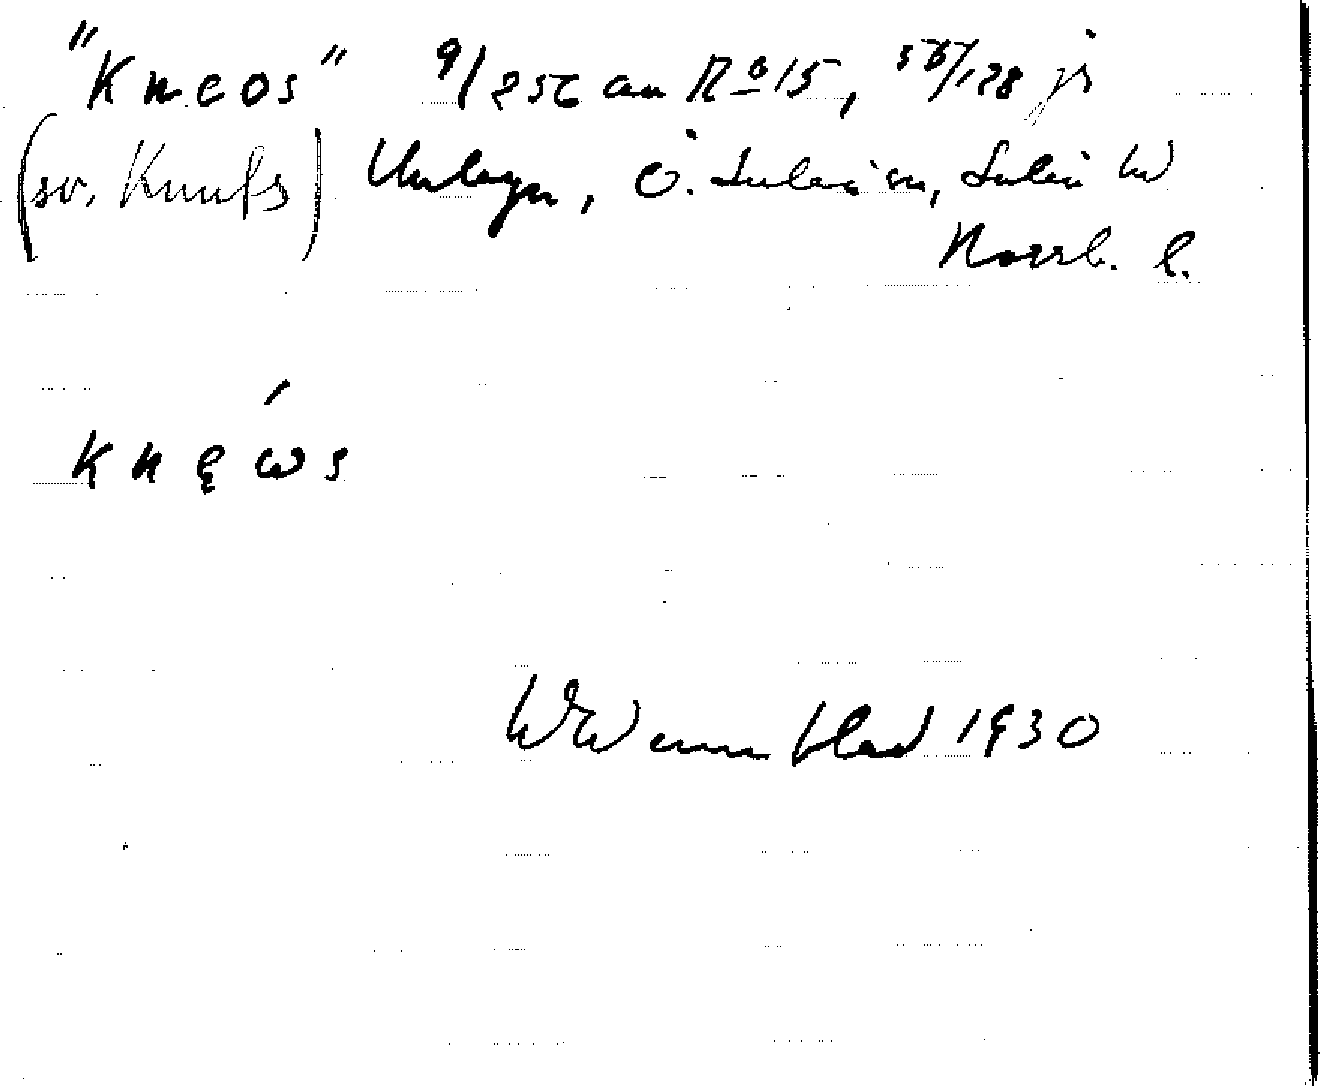 "Kneos" 9/256 au No 15, 57/128 jr
(sv. Knufs) Unbyn, Ö. Luleå sn, Luleå
Norrb. l.
knęώs
W Wennblad 1930